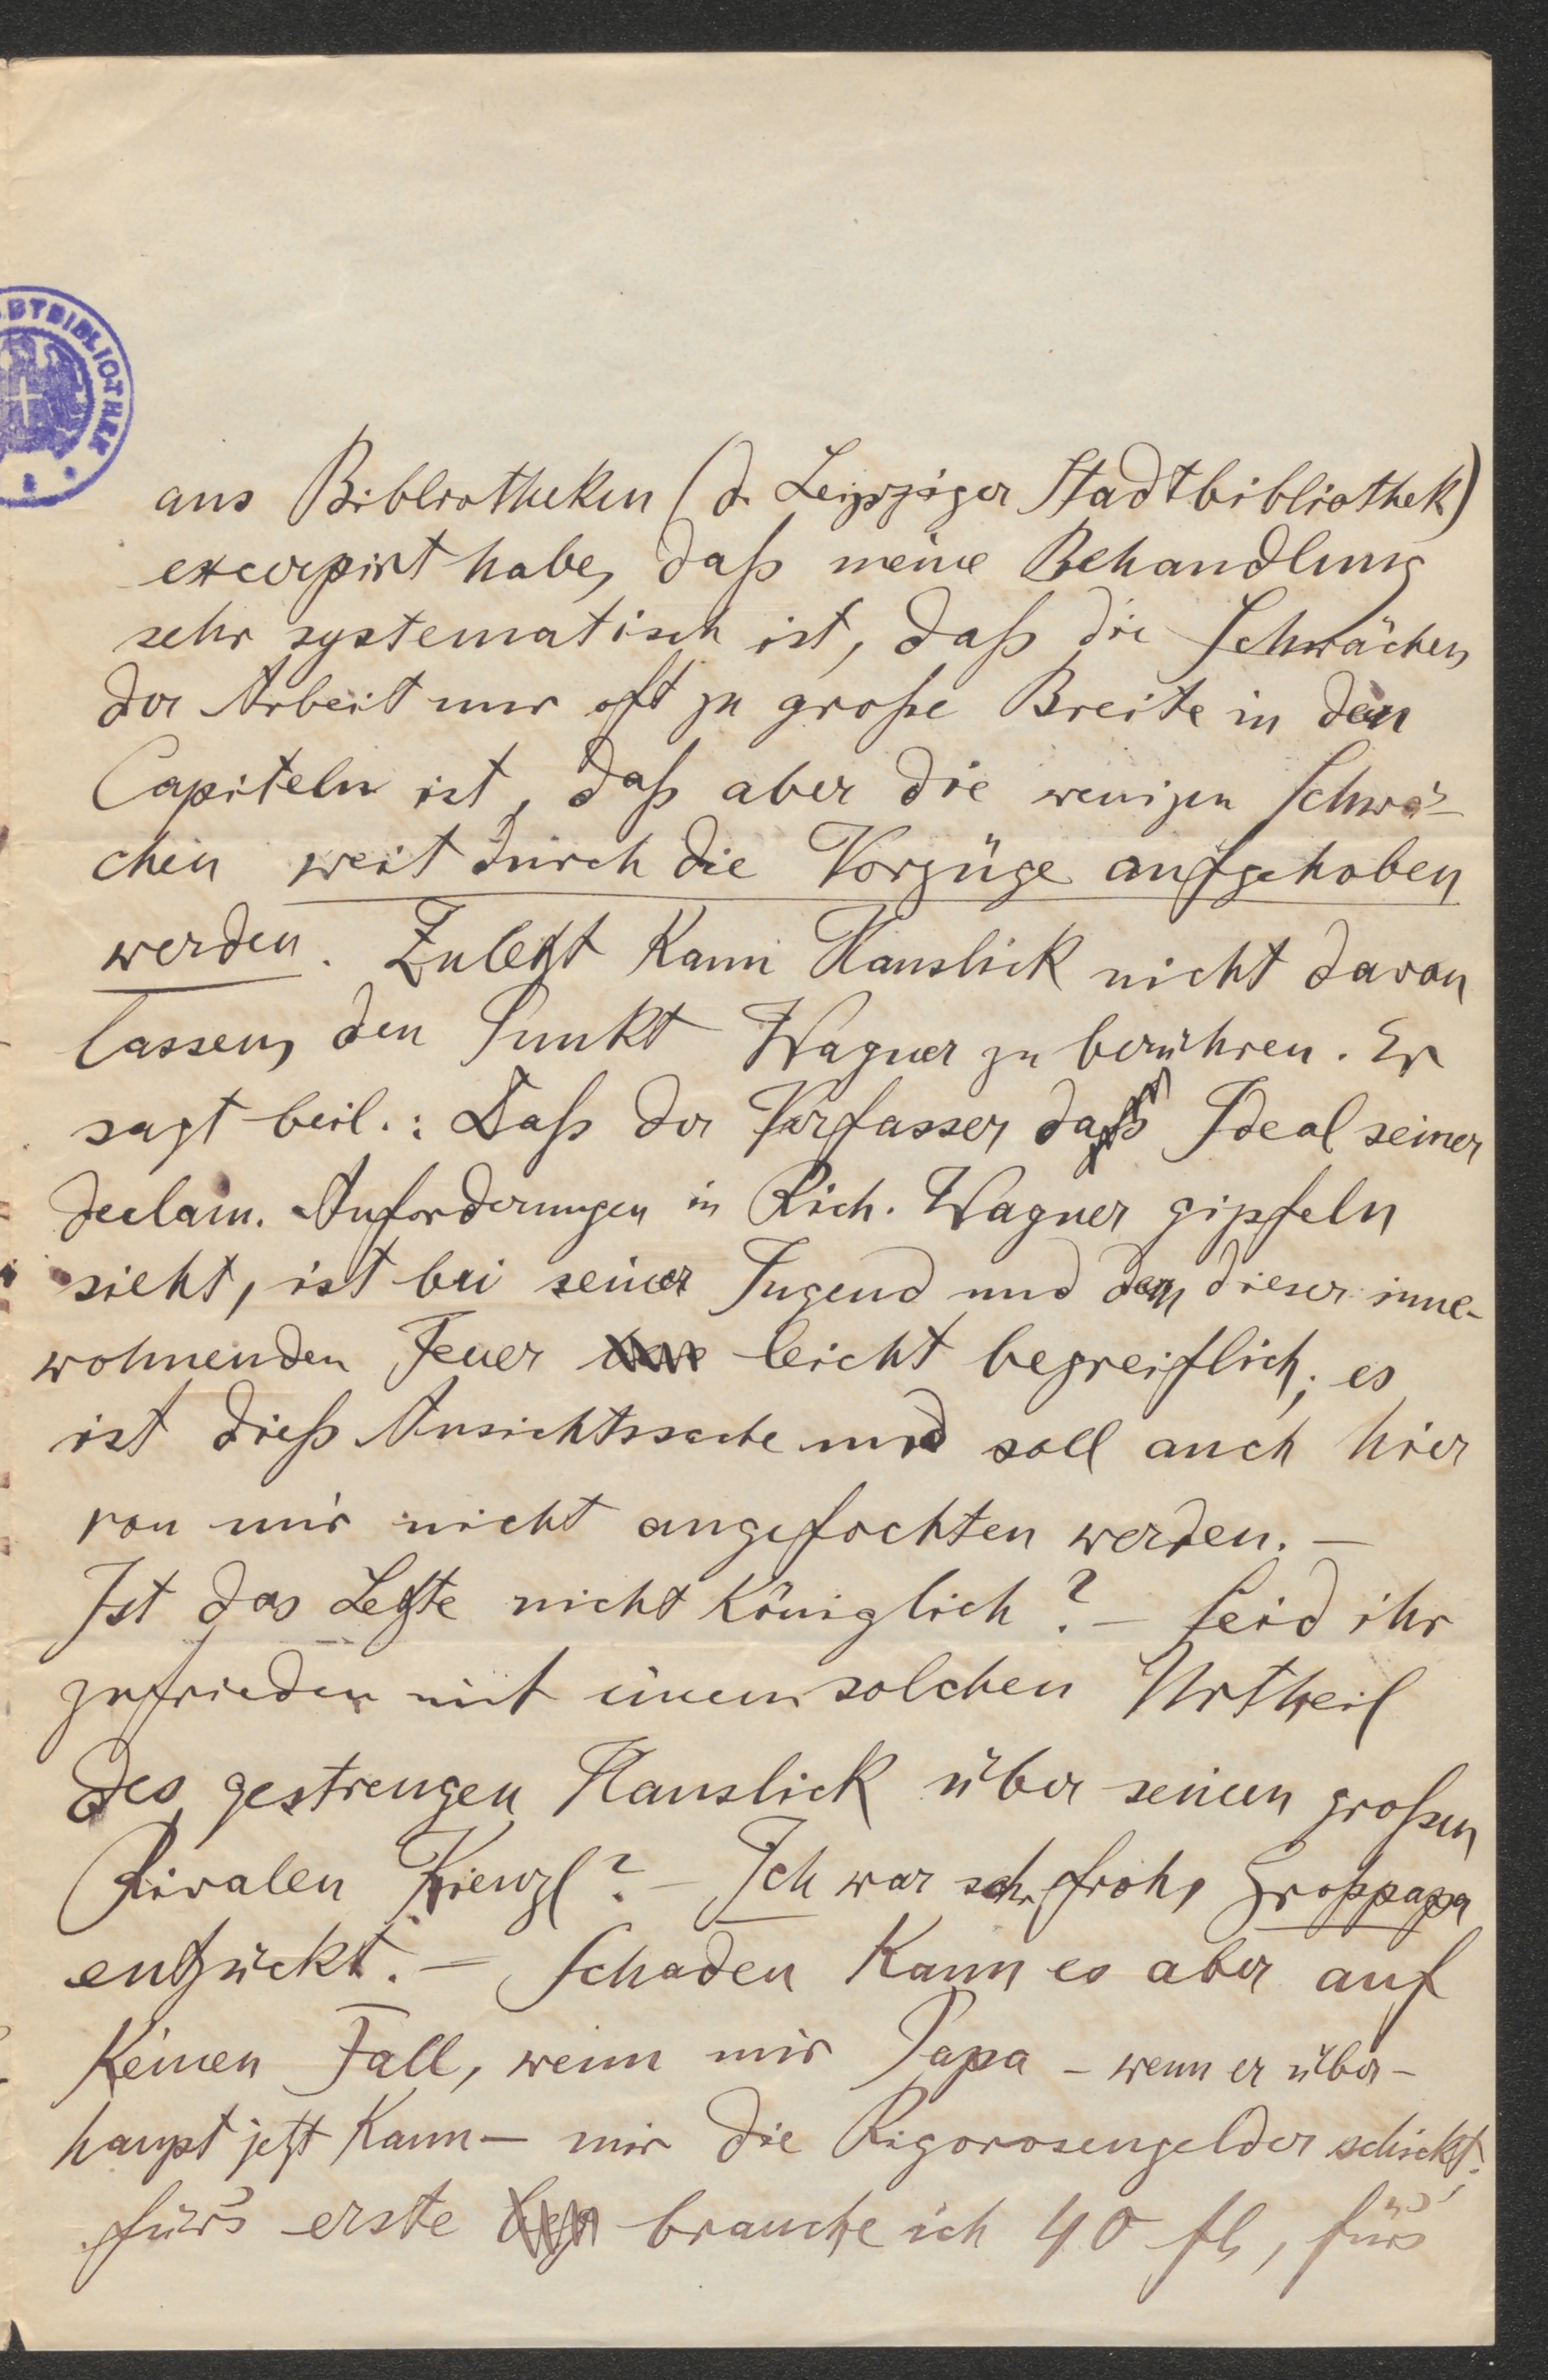 DTBIBLIOTHEK
aus Bibliotheken (d. Leipziger Stadtbibliothek)
excerpirt habe, daß meine Behandlung
sehr systematisch ist, daß die Schwächen
der Arbeit nur oft zu große Breite in den
Capiteln ist, daß aber die wenigen Schwä-
chen weit durch die Vorzüge aufgehoben
werden. Zuletzt kann Hanslick nicht davon
lassen, den Punkt Wagner zu berühren. Er
sagt beil.: Daß der Verfasser das Ideal seiner
declam. Anforderungen in Rich. Wagner gipfeln
sieht, ist bei seiner Jugend und dem dieser inne-
wohnenden Feuer leicht begreiflich; es
ist dieß Ansichtssache und soll auch hier
von mir nicht angefochten werden. —
Ist das Letzte nicht königlich? — Seid ihr
zufrieden mit einem solchen Urtheil
des gestrengen Hanslick über seinen großen
Rivalen Kienzl? — Ich war sehr froh, Großpapa
entzückt. — Schaden kann es aber auf
keinen Fall, wenn mir Papa — wenn er über-
haupt jetzt kann — mir die Rigorosengelder schickt;
für's erste brauche ich 40 fl, für's